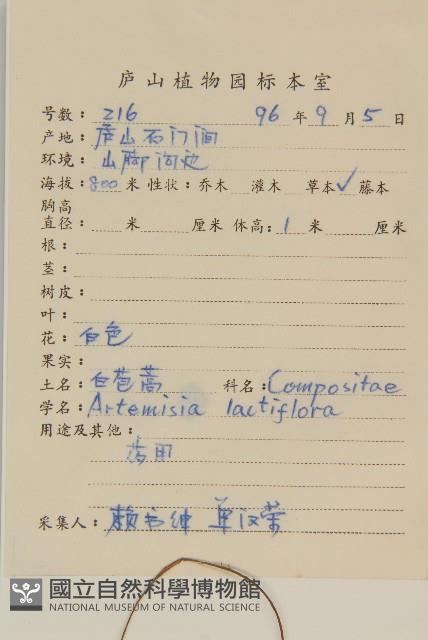 庐山植物园标本室
号数: 216 96 年 9 月 5 日
产地: 庐山石门涧
环境: 山脚沟边
海拔: 800 米 性状: 乔木 灌木 草本✓藤本
胸高
直径: 米 厘米 体高: 1 米 厘米
根:
茎:
树皮:
叶:
花: 白色
果实:
土名: 白苞蒿 科名: Compositae
学名: Artemisia lactiflora
用途及其他:
药用
采集人: 赖书绅 单汉荣
國立自然科學博物館
NATIONAL MUSEUM OF NATURAL SCIENCE